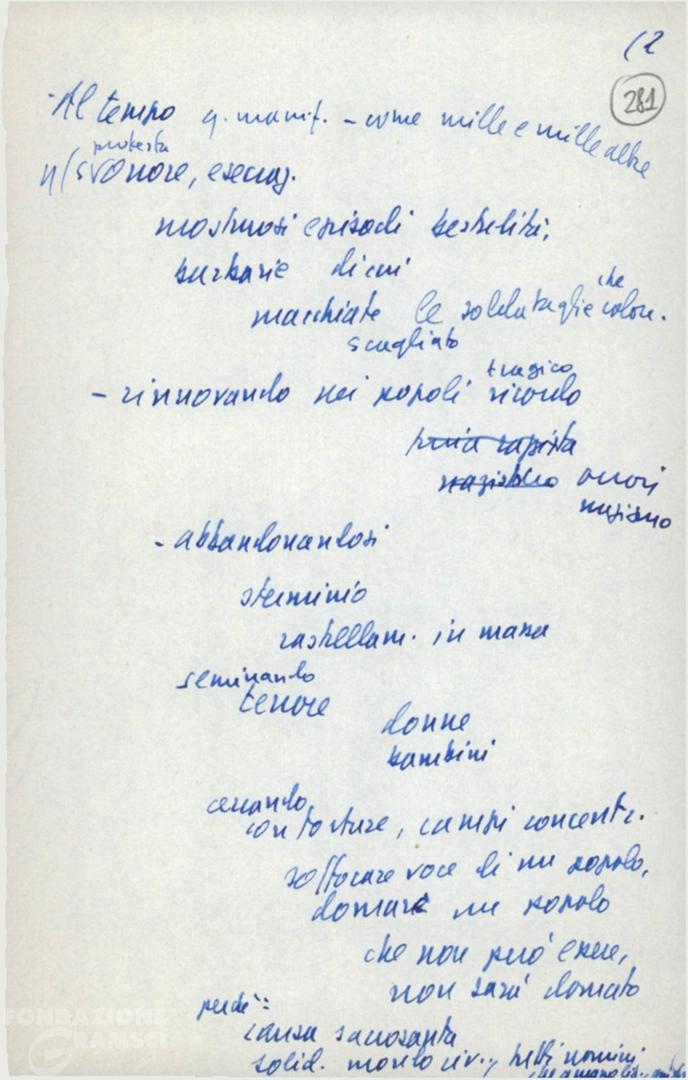 (2
281
- Al tempo q. manif. - come mille e mille altre
protesta
orrore, esecraz.
mostruosi episodi bestialità,
barbarie di cui
che
macchiate le soldataglie colon.
scagliato
tragico
- rinnovando nei popoli ricordo
furia razzista
orrori
nazismo
- abbandonandosi
sterminio
rastrellam. in massa
seminando
terrore
donne
bambini
cercando
con torture, campi concentr.
soffocare voce di un popolo,
domare un popolo
che non può essere,
non sarà domato
perché:
causa sacrosanta
solid. mondo civ., tutti uomini
che amano lib.,
FONDAZIONE
GRAMSCI